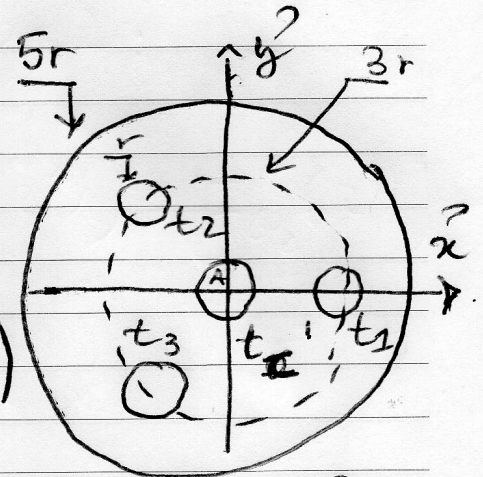 5r
ŷ
3r
r
t2
x̂
A
t3
t1
)